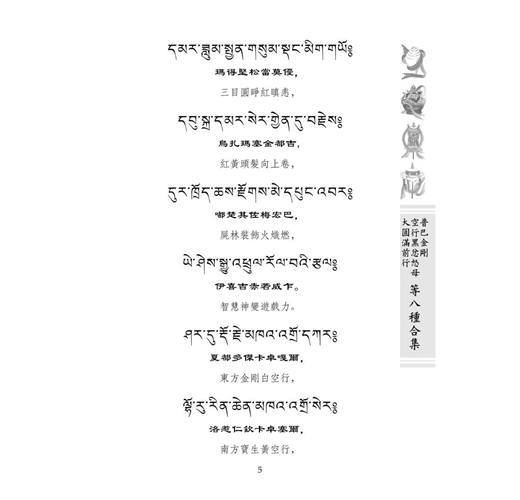 དམར་ཟླུམ་སྤྱན་གསུམ་སྡང་མིག་གཡོ༔
瑪得堅松當莫優，
三目圓睜紅嗔恚，
དབུ་སྐྲ་དམར་སེར་གྱེན་དུ་བརྫེས༔
烏扎瑪塞金都吉，
紅黃頭髮向上卷，
དུར་ཁྲོད་ཆས་རྫོགས་མེ་དཔུང་འབར༔
嘟楚其佐梅宏巴，
屍林裝飾火熾燃，
ཡེ་ཤེས་སྒྱུ་འཕྲུལ་རོལ་བའི་རྩལ༔
伊喜吉赤若威卡。
智慧神變遊戲力。
ཤར་དུ་རྡོ་རྗེ་མཁའ་འགྲོ་དཀར༔
夏都多傑卡卓嘎爾，
東方金剛白空行，
ལྷོ་རུ་རིན་ཆེན་མཁའ་འགྲོ་སེར༔
洛惹仁欽卡卓塞爾，
南方寶生黃空行，
普巴金剛
空行黑忿怒母
大圓滿前行
等八種合集
5